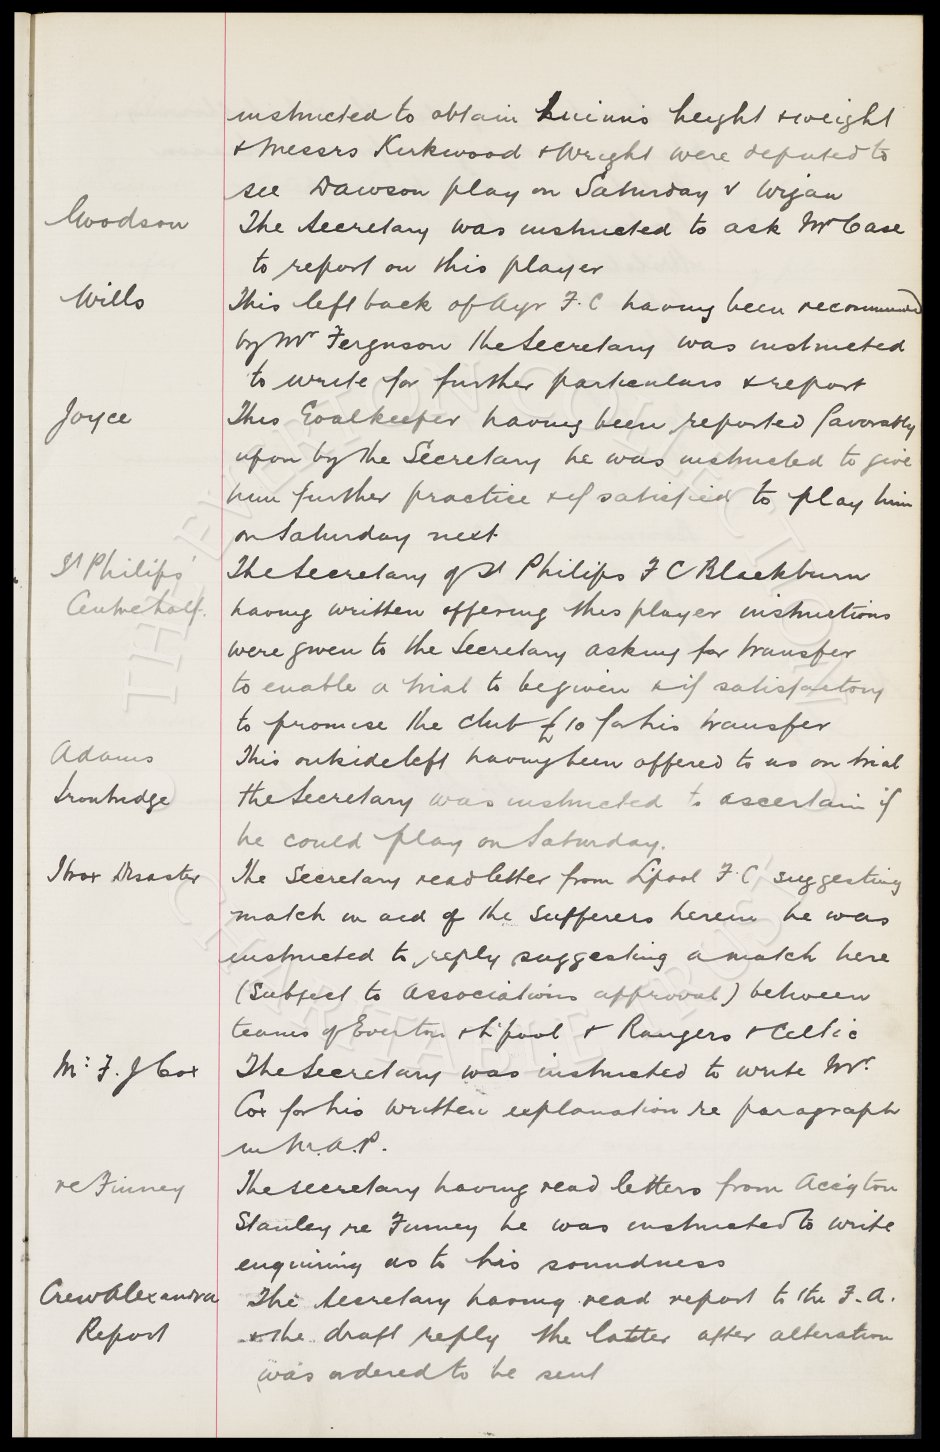 instructed to obtain height & weight
& Messrs Kirkwood & Wright were deputed to
see Dawson play on Saturday v Wigan
Goodson The Secretary was instructed to ask Mr Case
to report on this player
Wills This left back of Ayr F.C having been recommended
by Mr Ferguson the Secretary was instructed
to write for further particulars & report
Joyce This Goalkeeper having been reported favorably
upon by the Secretary he was instructed to give
him further practice & if satisfied to play him
on Saturday next
St Philips' The Secretary of St Philips F C Blackburn
Centre half. having written offering this player instructions
were given to the Secretary asking for transfer
to enable a trial to be given & if satisfactory
to promise the club £10 for his transfer
Adams This outside left having been offered to us on trial
Ironbridge the Secretary was instructed to ascertain if
he could play on Saturday.
Ibrox Disaster The Secretary read letter from L'pool F.C. suggesting
match in aid of the sufferers herein he was
instructed to reply suggesting a match here
(Subject to Associations approval) between
teams of Everton & L'pool & Rangers & Celtic
Mr. F. J Cox The Secretary was instructed to write Mr.
Cox for his written explanation re paragraph
in M.A.P.
re Finney The secretary having read letters from Accgton
Stanley re Finney he was instructed to write
enquiring as to his soundness
Crew Alexandra The Secretary having read report to the F.A.
Report & the draft reply the latter after alteration
was ordered to be sent
THE EVERTON COLLECTION
CHARITABLE TRUST